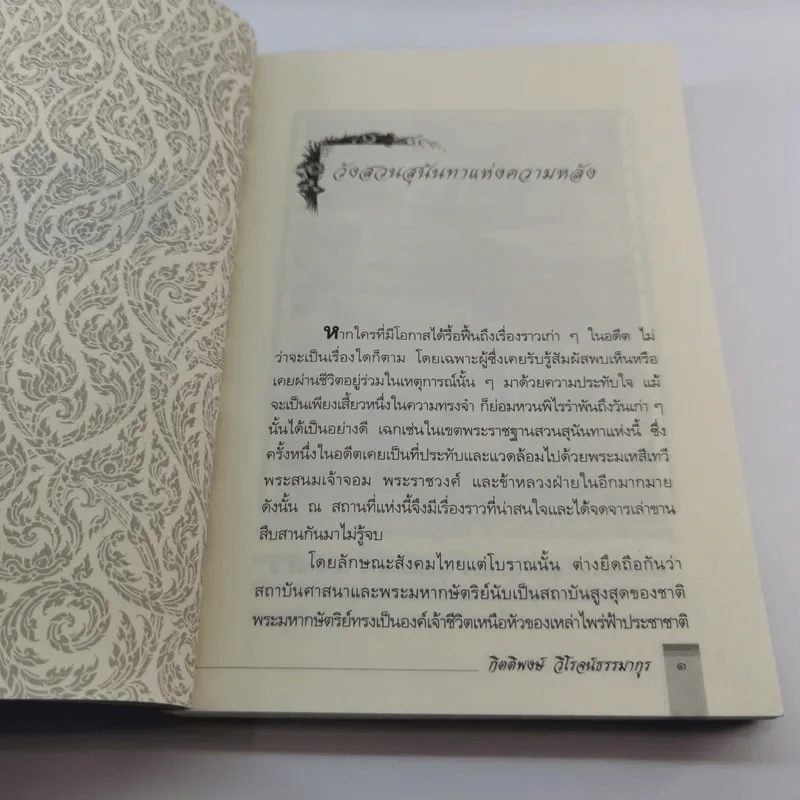 วังสวนสุนันทาแห่งความหลัง
หากใครที่มีโอกาสได้รื้อฟื้นถึงเรื่องราวเก่า ๆ ในอดีต ไม่
ว่าจะเป็นเรื่องใดก็ตาม โดยเฉพาะผู้ซึ่งเคยรับรู้สัมผัสพบเห็นหรือ
เคยผ่านชีวิตอยู่ร่วมในเหตุการณ์นั้น ๆ มาด้วยความประทับใจ แม้
จะเป็นเพียงเสี้ยวหนึ่งในความทรงจำ ก็ย่อมหวนพิไรรำพันถึงวันเก่า ๆ
นั้นได้เป็นอย่างดี เฉกเช่นในเขตพระราชฐานสวนสุนันทาแห่งนี้ ซึ่ง
ครั้งหนึ่งในอดีตเคยเป็นที่ประทับและแวดล้อมไปด้วยพระมเหสีเทวี
พระสนมเจ้าจอม พระราชวงศ์ และข้าหลวงฝ่ายในอีกมากมาย
ดังนั้น ณ สถานที่แห่งนี้จึงมีเรื่องราวที่น่าสนใจและได้จดจารเล่าขาน
สืบสานกันมาไม่รู้จบ
โดยลักษณะสังคมไทยแต่โบราณนั้น ต่างยึดถือกันว่า
สถาบันศาสนาและพระมหากษัตริย์นับเป็นสถาบันสูงสุดของชาติ
พระมหากษัตริย์ทรงเป็นองค์เจ้าชีวิตเหนือหัวของเหล่าไพร่ฟ้าประชาชาติ
กิตติพงษ์ วิโรจน์ธรรมากูร ๑